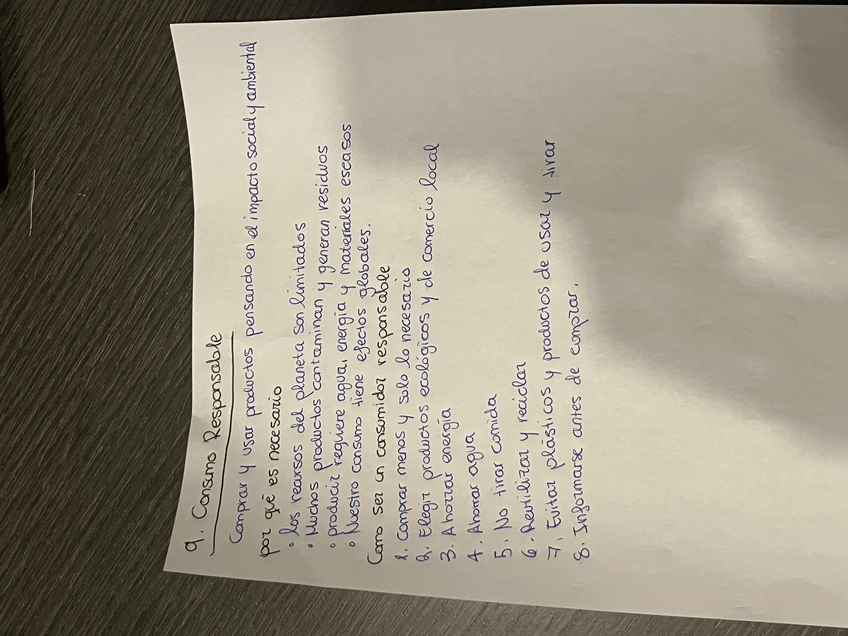 9. Consumo Responsable
Comprar y usar productos pensando en el impacto social y ambiental
por qué es necesario
• los recursos del planeta son limitados
• Muchos productos contaminan y generan residuos
• producir requiere agua, energía y materiales escasos
• Nuestro consumo tiene efectos globales.
Como ser un consumidor responsable
1. Comprar menos y solo lo necesario
2. Elegir productos ecológicos y de comercio local
3. Ahorrar energía
4. Ahorrar agua
5. No tirar comida
6. Reutilizar y reciclar
7. Evitar plásticos y productos de usar y tirar
8. Informarse antes de comprar.